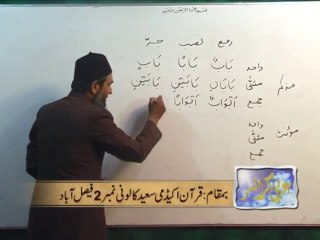 بسم اللہ الرحمٰن الرحیم
رفع نصب جرّ
واحد بَابٌ بَابًا بَابٍ
مذکر مثنّٰی بَابَانِ بَابَیْنِ بَابَیْنِ
جمع اَبْوَابٌ اَبْوَابًا
واحد
مؤنث مثنّٰی
جمع
بمقام: قرآن اکیڈمی سعید کالونی نمبر 2 فیصل آباد